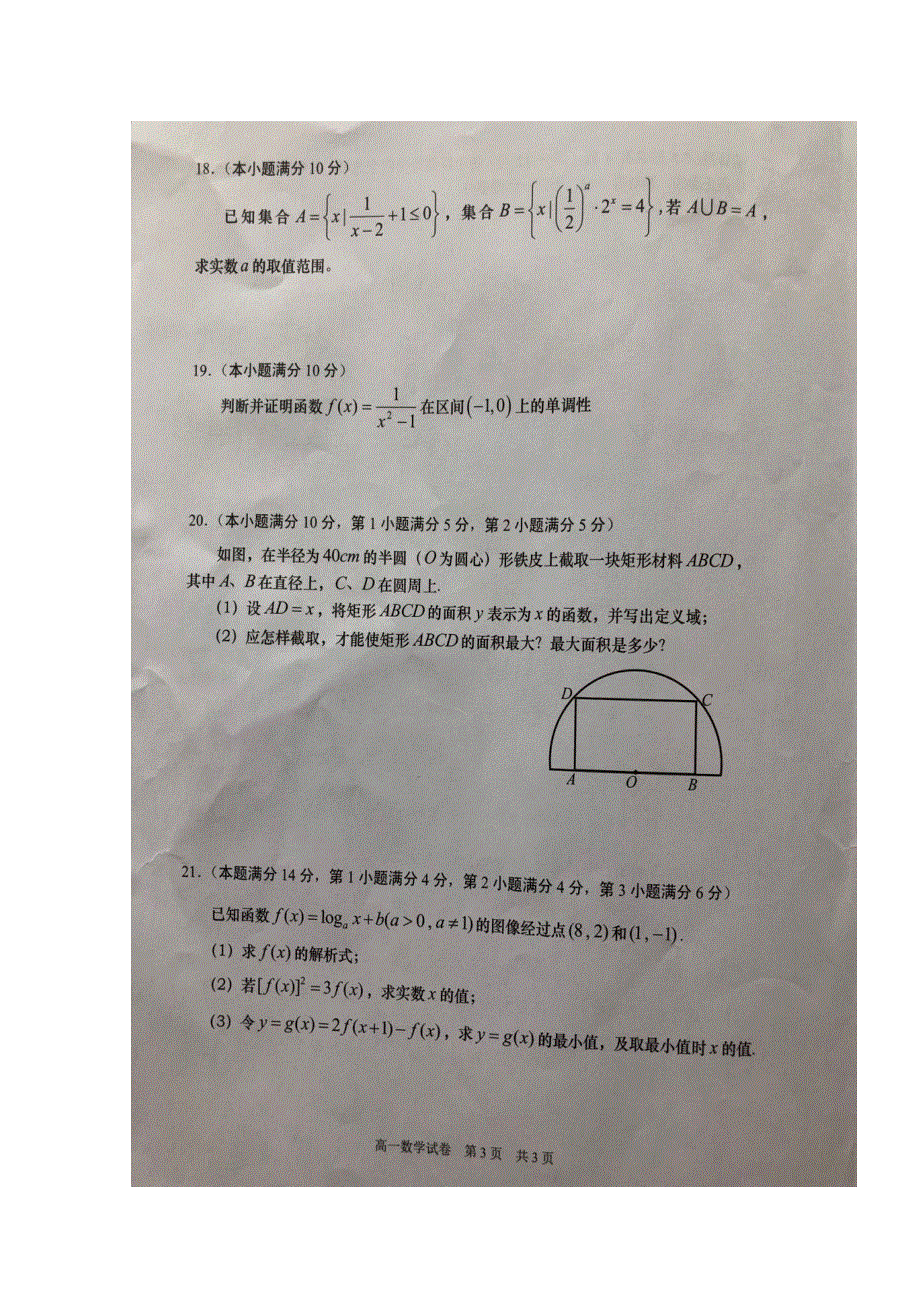 18.（本小题满分 10 分）
已知集合 A={x|1/(x−2)+1≤0}，集合 B={x|(1/2)^a·2^x=4},若 A∪B=A，
求实数 a 的取值范围。
19.（本小题满分 10 分）
判断并证明函数 f(x)=1/(x²−1) 在区间(−1,0)上的单调性
20.（本小题满分 10 分，第 1 小题满分 5 分，第 2 小题满分 5 分）
如图，在半径为 40cm 的半圆（O 为圆心）形铁皮上截取一块矩形材料 ABCD，
其中 A、B 在直径上，C、D 在圆周上.
（1）设 AD=x，将矩形 ABCD 的面积 y 表示为 x 的函数，并写出定义域；
（2）应怎样截取，才能使矩形 ABCD 的面积最大？最大面积是多少？
D
C
A
O
B
21.（本题满分 14 分，第 1 小题满分 4 分，第 2 小题满分 4 分，第 3 小题满分 6 分）
已知函数 f(x)=logₐ x+b(a>0,a≠1)的图像经过点(8,2)和(1,−1).
（1）求 f(x)的解析式；
（2）若[f(x)]²=3f(x)，求实数 x 的值；
（3）令 y=g(x)=2f(x+1)−f(x)，求 y=g(x)的最小值，及取最小值时 x 的值.
高一数学试卷 第 3 页 共 3 页